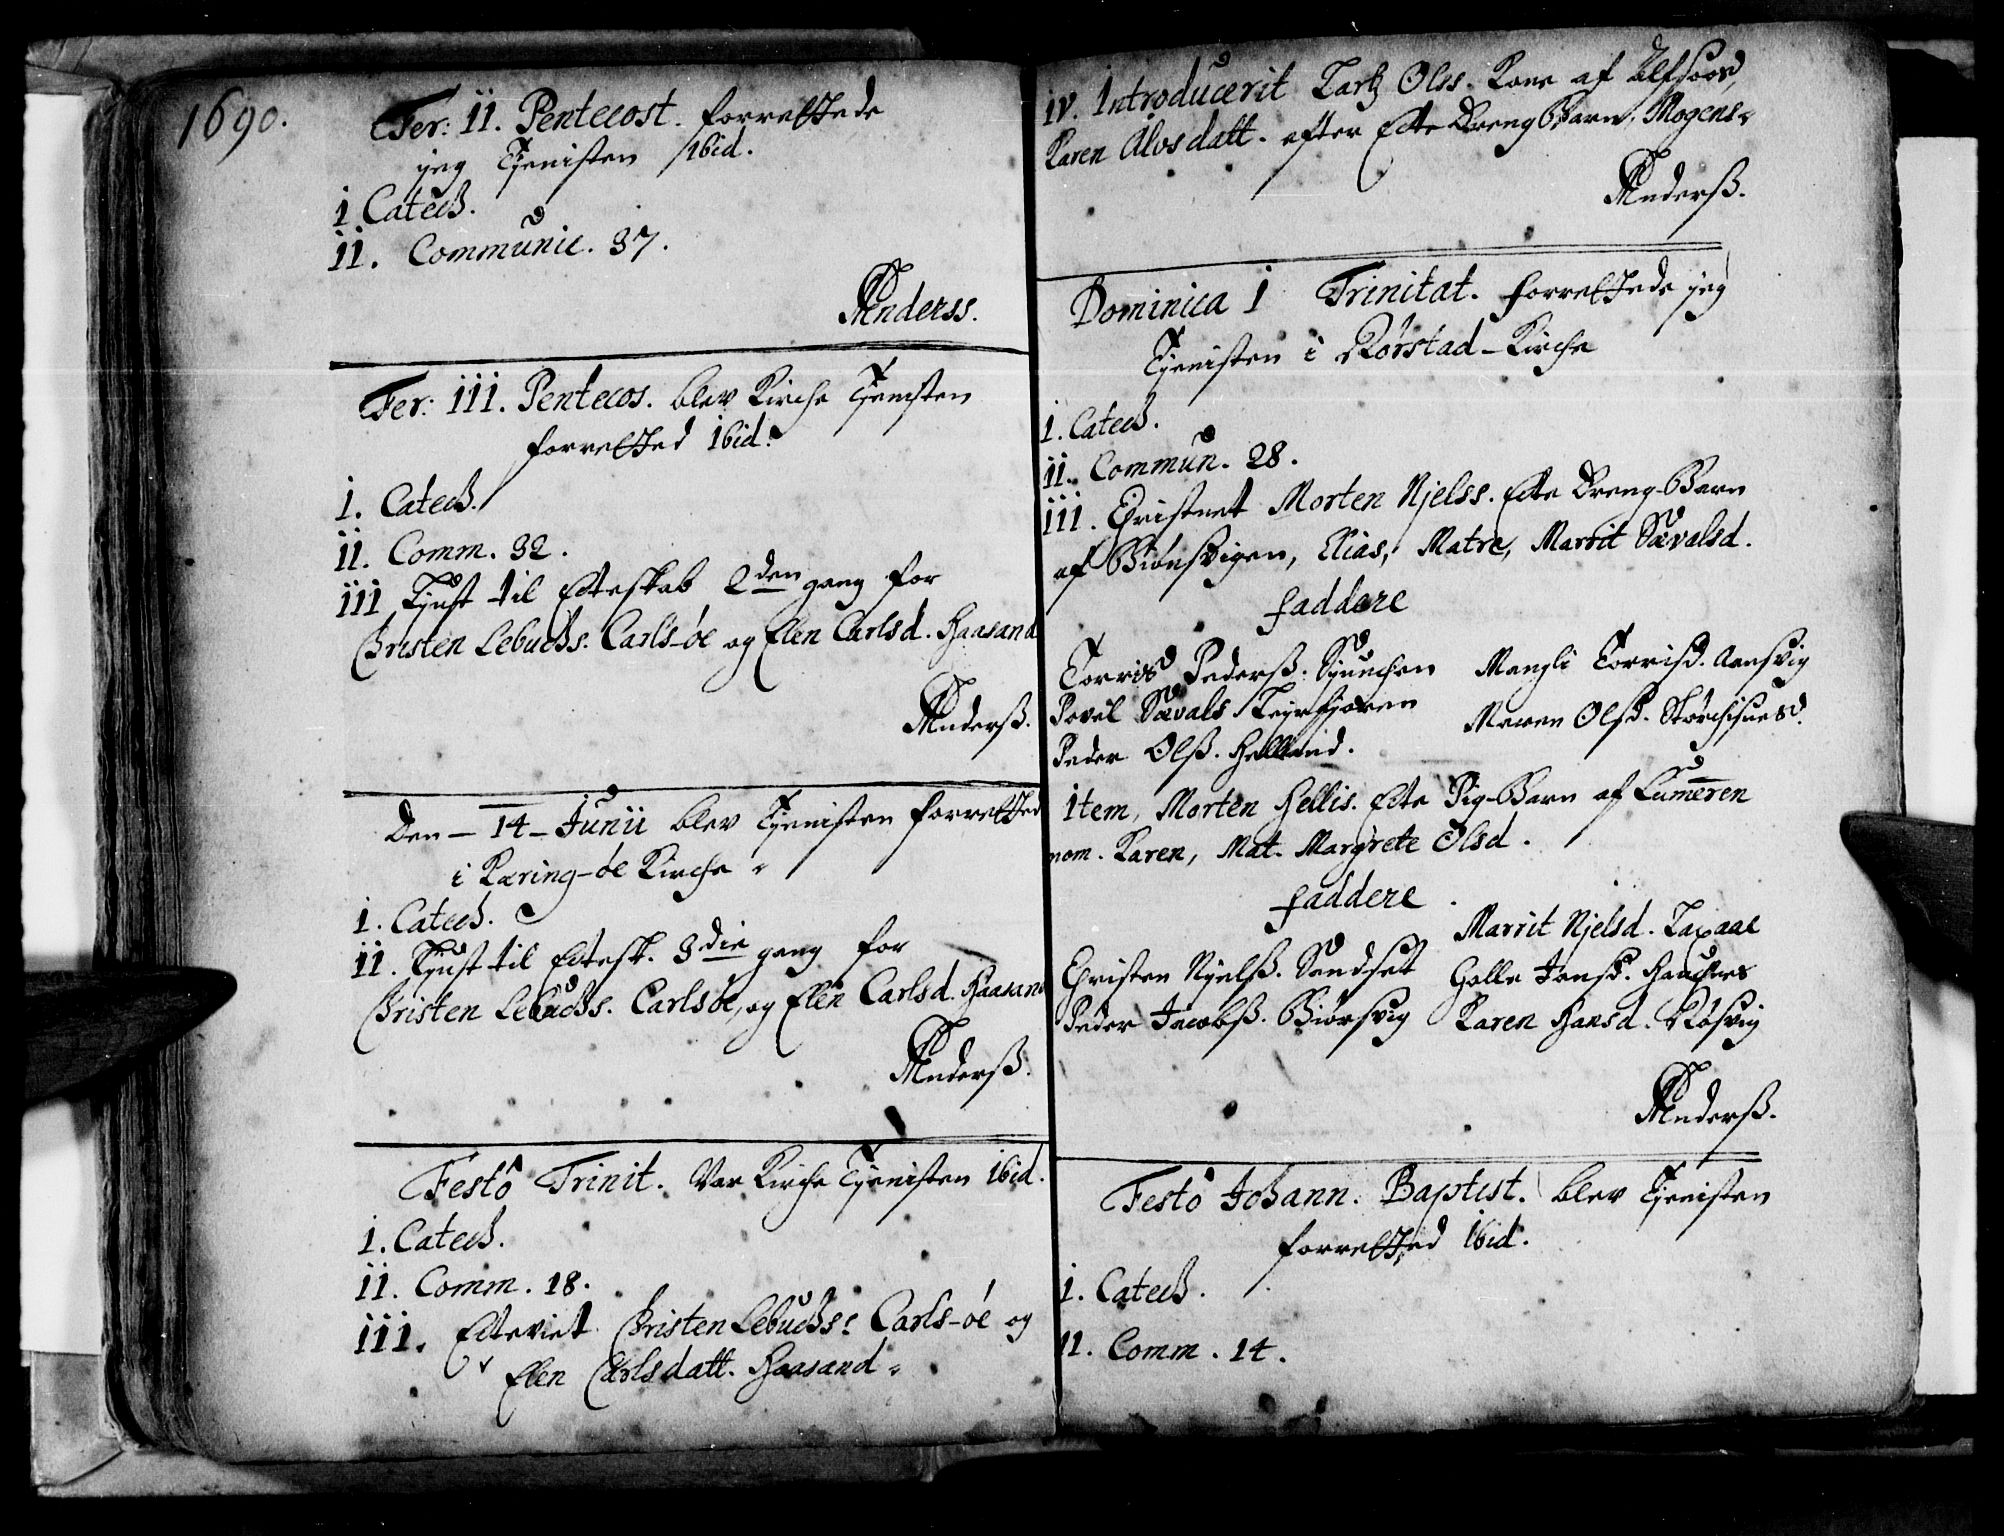 1690.
Fer: II. Pentecost. forrettede
jeg Tjenisten Ibid.
I Catech.
II. Communic. 37.
Anderss.
Fer: III. Pentecos. blev Kirche Tjenisten
forretted Ibid.
I. Catech.
II. Comm. 32.
III Lyust til Ecteskab 2den gang for
Christen Lebuchs. Carls-öe og Elen Carlsd. Haasand
Anderss.
Den - 14 - Junii blev Tjenisten forretted
i Kæring-öe Kirche
I. Catech.
II. Lyust til Ectesk. 3die gang for
Christen Lebuchs. Carlsöe, og Elen Carlsd. Haasand
Anderss.
Festo Trinit. Var Kirche Tjenisten Ibid.
I. Catech.
II. Comm. 18.
III. Ecteviet Christen Lebuchs: Carls-öe og
Elen Carlsdatt. Haasand
IV. Introducerit Lartz Olss. Kone af
Karen Alvsdatt. efter Ecte Dreng Barn. Mogens
Anderss.
Dominica I Trinitat. forrettede jeg
Tjenisten i Rörstad-Kirche
I. Catech.
II. Commun. 28.
III. Christnet Morten Njelss. Ecte Dreng-Barn
af Elias, Matre, Marrit Sævalsd.
faddere
Torris Pederss. Mangli Torrisd. Aansvig
Povel Sævals Leyrfjoren Maren Olsd.
Peder Olss. Helland.
Item, Morten Hellis. Ecte Pig-Barn af Lumeren
nom. Karen, Mat. Margrete Olsd.
faddere
Marrit Njelsd. Laxaae
Christen Njelss. Sandset Golla Jonsd.
Peder Jacobss. Biörsvig Karen Hansd. Rösvig
Anderss.
Festo Johann. Baptist. blev Tjenisten
forretted Ibid.
I. Catech.
II. Comm. 14.